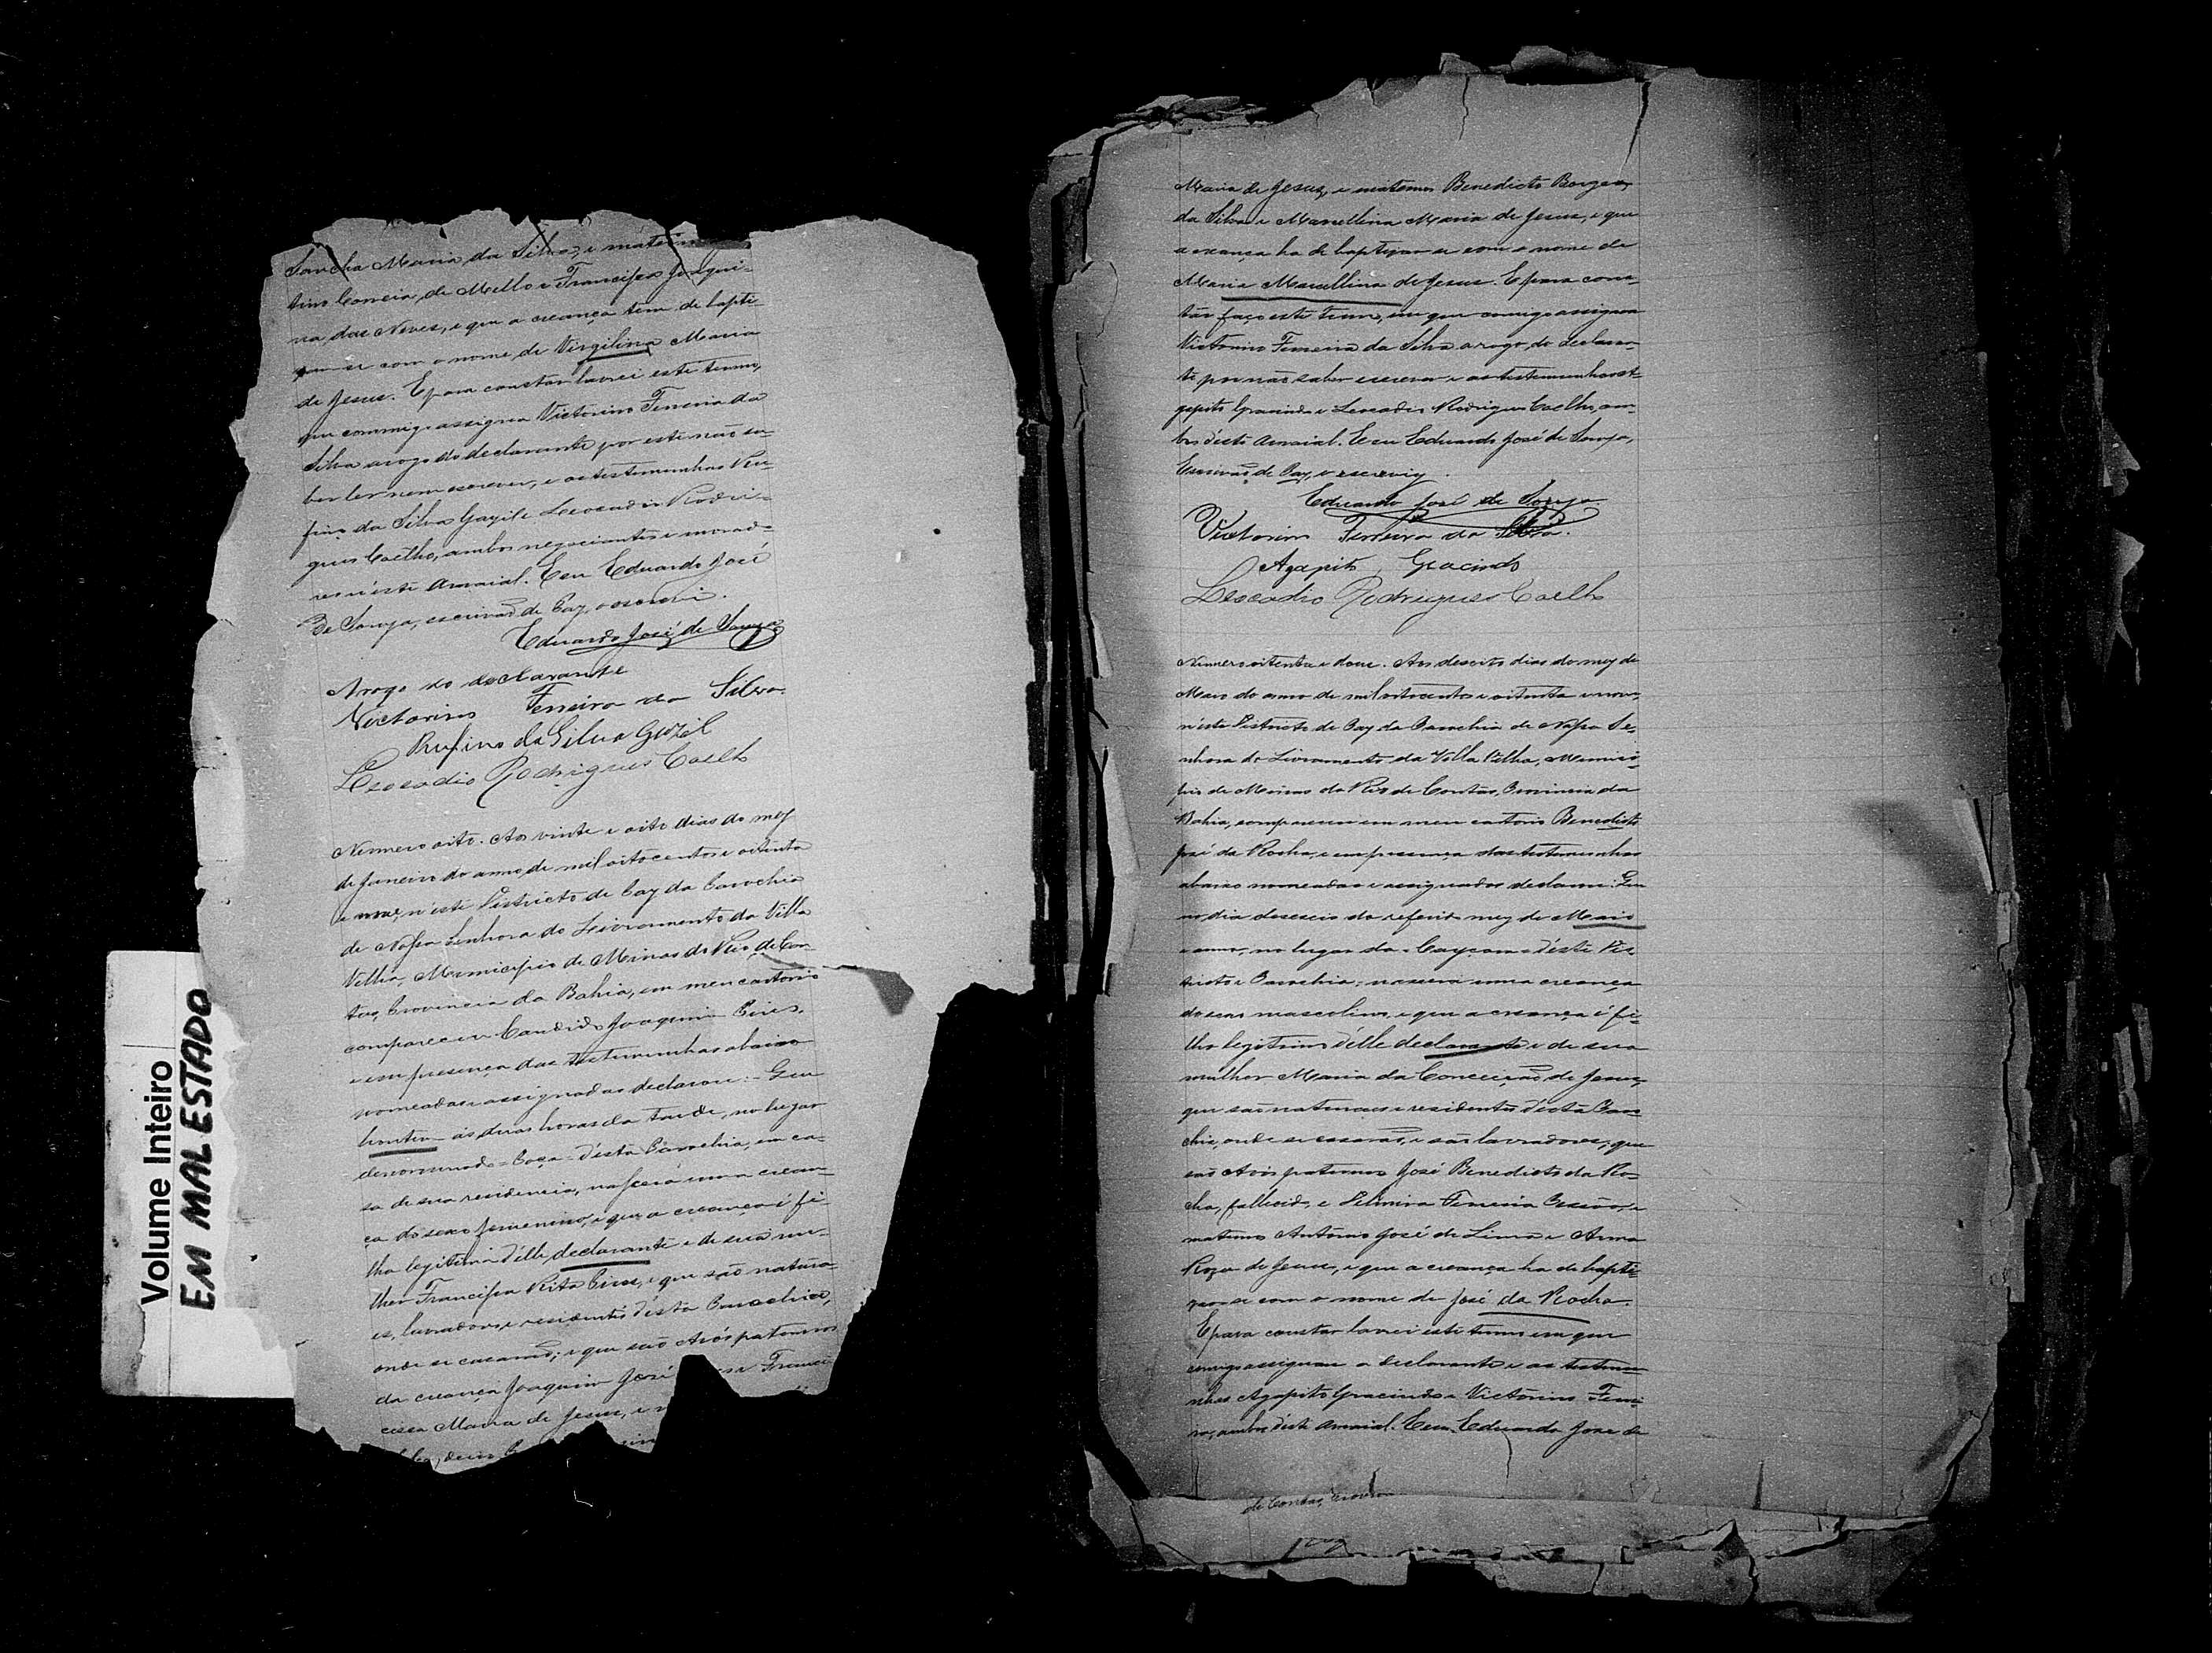 Sancha Maria da Silva, e mater
tino Correia de Mello e Francisca Joaqui-
na das Neves, e que a creança tem de bapti-
sar-se com o nome de Virgilina Maria
de Jesus. E para constar lavrei este termo,
que commigo assigna Victorino Ferreira da
Silva a rogo do declarante por este não sa-
ber ler nem escrever, e as testemunhas Ru-
fino da Silva Gazil e Leocadio Rodri-
gues Coelho, ambos negociantes e morado-
res n'este Arraial. E eu Eduardo José
de Souza, escrivão de Paz, o escrevi.
Eduardo José de Souza
Arogo do declarante
Victorino Ferreira da Silva.
Rufino da Silva Gazil
Leocadio Rodrigues Coelho
Numero oito. Aos vinte e oito dias do mez
de Janeiro do anno de mil oitocentos e oitenta
e nove, n'este Districto de Paz da Parochia
de Nossa Senhora do Livramento da Villa
Velha, Municipio de Minas do Rio de Con-
tas, Provincia da Bahia, em meu cartorio
compareceu Candido Joaquim Pires,
e em presença das testemunhas abaixo
nomeadas e assignadas declarou: - Que
hontem ás duas horas da tarde, no lugar
denominado = = d'esta Parochia, em ca-
sa de sua residencia, nascera uma crean-
ça do sexo femenino, e que a creança é fi-
lha legitima d'elle declarante e de sua mu-
lher Francisca Rita Pires, e que são natura-
es, lavradores e residentes d'esta Parochia,
onde se casarão; e que são Avós paternos
da creança Joaquim José Franci
cisca Maria de Jesus, e
Maria de Jesus, e maternos Benedicto Borges
da Silva e Marcellina Maria de Jesus, e que
a creança ha de baptizar-se com o nome de
Maria Marcellina de Jesus. E para cons-
tar faço este termo, em que comigo assigna
Victorino Ferreira da Silva a rogo do declaran-
te por não saber escrever e as testemunhas A-
gapito Gracindo e Leocadio Rodrigues Coelho, am-
bos d'este Arraial. E eu Eduardo José de Souza,
Escrivão de Paz, o escrevy.
Eduardo José de Souza
Victorino Ferreira da Silva.
Agapito Gracindo
Leocadio Rodrigues Coelho
Numero oitenta e dous. Aos desoito dias do mez de
Maio do anno de mil oitocentos e oitenta e nove,
n'este Districto de Paz da Parochia de Nossa Se-
nhora do Livramento da Villa Velha, Munici-
pio de Minas do Rio de Contas, Provincia da
Bahia, compareceu em meu cartorio Benedicto
José da Rocha, e em presença das testemunhas
abaixo nomeadas e assignadas declarou: Que
no dia deseseis do referido mez de Maio
e anno, no lugar da = = d'este Dis-
tricto e Parochia, nascera uma creança
do sexo masculino, e que a creança é fi-
lho legitimo d'elle declarante e de sua
mulher Maria da Conceição de Jesus,
que são naturaes e residentes d'esta Paro
chia, onde se casarão, e são lavradores; que
são Avós paternos José Benedicto da Ro-
cha, fallecido, e Ferreira e
maternos Antonio José de Lima e Anna
Roza de Jesus, e que a creança ha de bapti-
zar-se com o nome de José da Rocha.
E para constar lavrei este termo em que
comigo assignão o declarante e as testemu-
nhas Agapito Gracindo e Victorino Ferrei
ra, ambos d'este Arraial. E eu Eduardo José de
de Contas, Provin